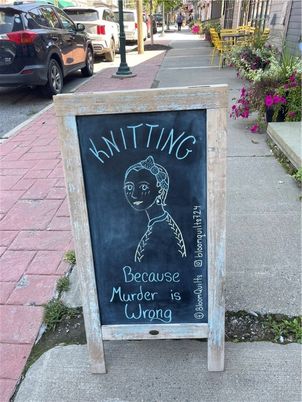 KNITTING
Because
Murder is
Wrong
@BloomQuilts
bloomquilts724